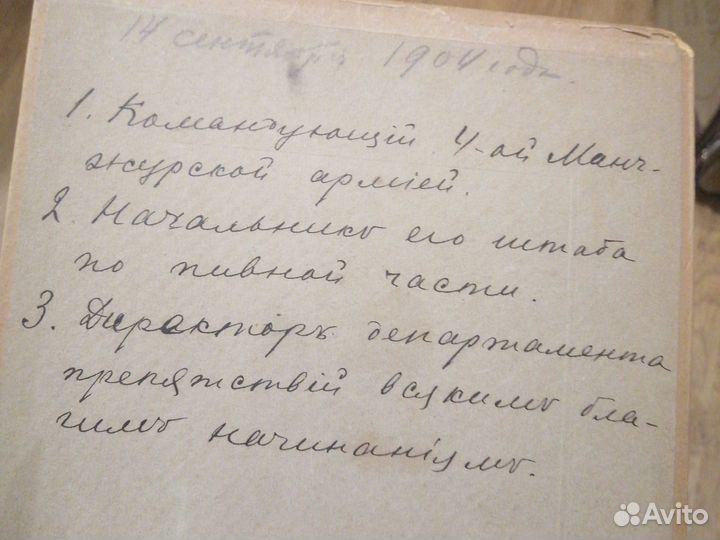 14 сентября 1904 года.
1. Командующій 4-ой Манч-
журской арміей.
2. Начальникъ его штаба
по пивной части.
3. Директоръ департамента
препятствій всякимъ бла-
гимъ начинаніямъ.
Avito